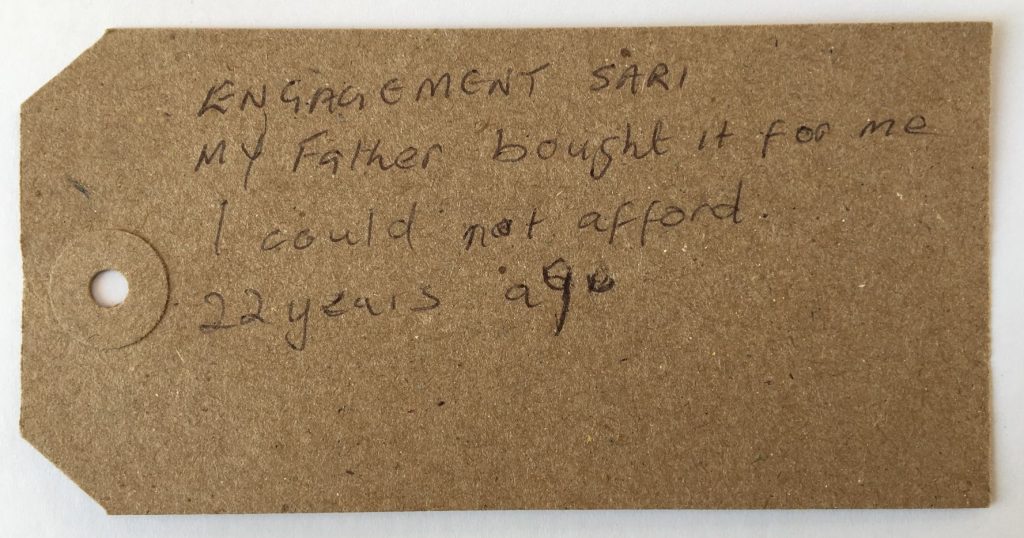 ENGAGEMENT SARI
MY Father bought it for me
I could not afford.
22 years ago